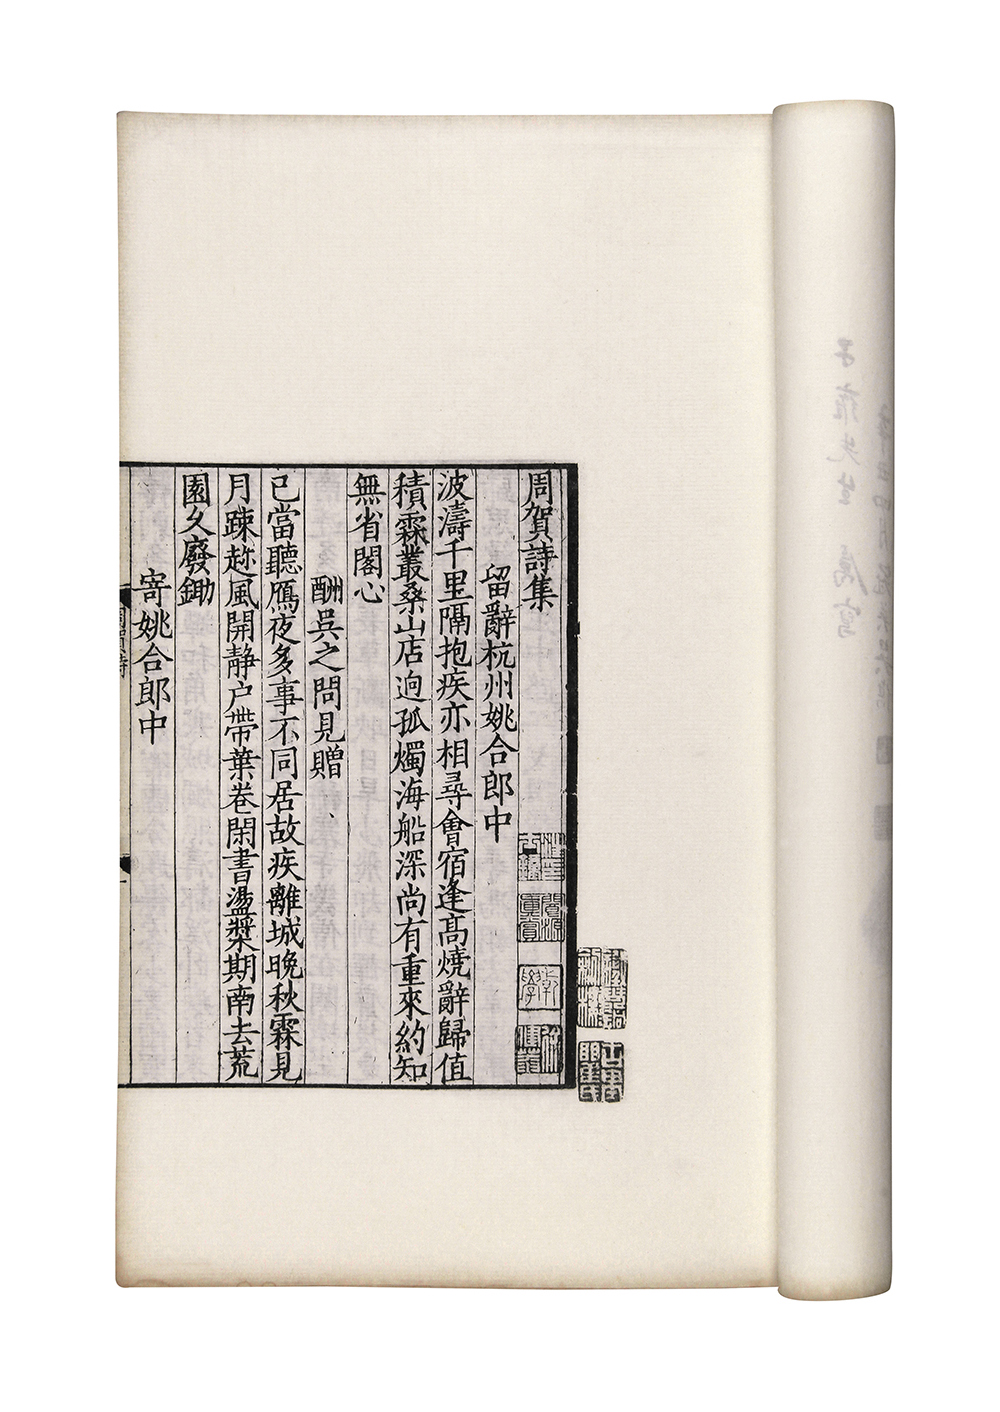 周賀詩集
留辭杭州姚合郎中
波濤千里隔抱疾亦相尋會宿逢髙燒辭歸值
積霖叢桑山店逈孤燭海船深尚有重來約知
無省閣心
酬吳之問見贈
已當聽鴈夜多事不同居故疾離城晚秋霖見
月踈趂風開靜户帶葉卷閑書盪槳期南去荒
園久廢鋤
寄姚合郎中